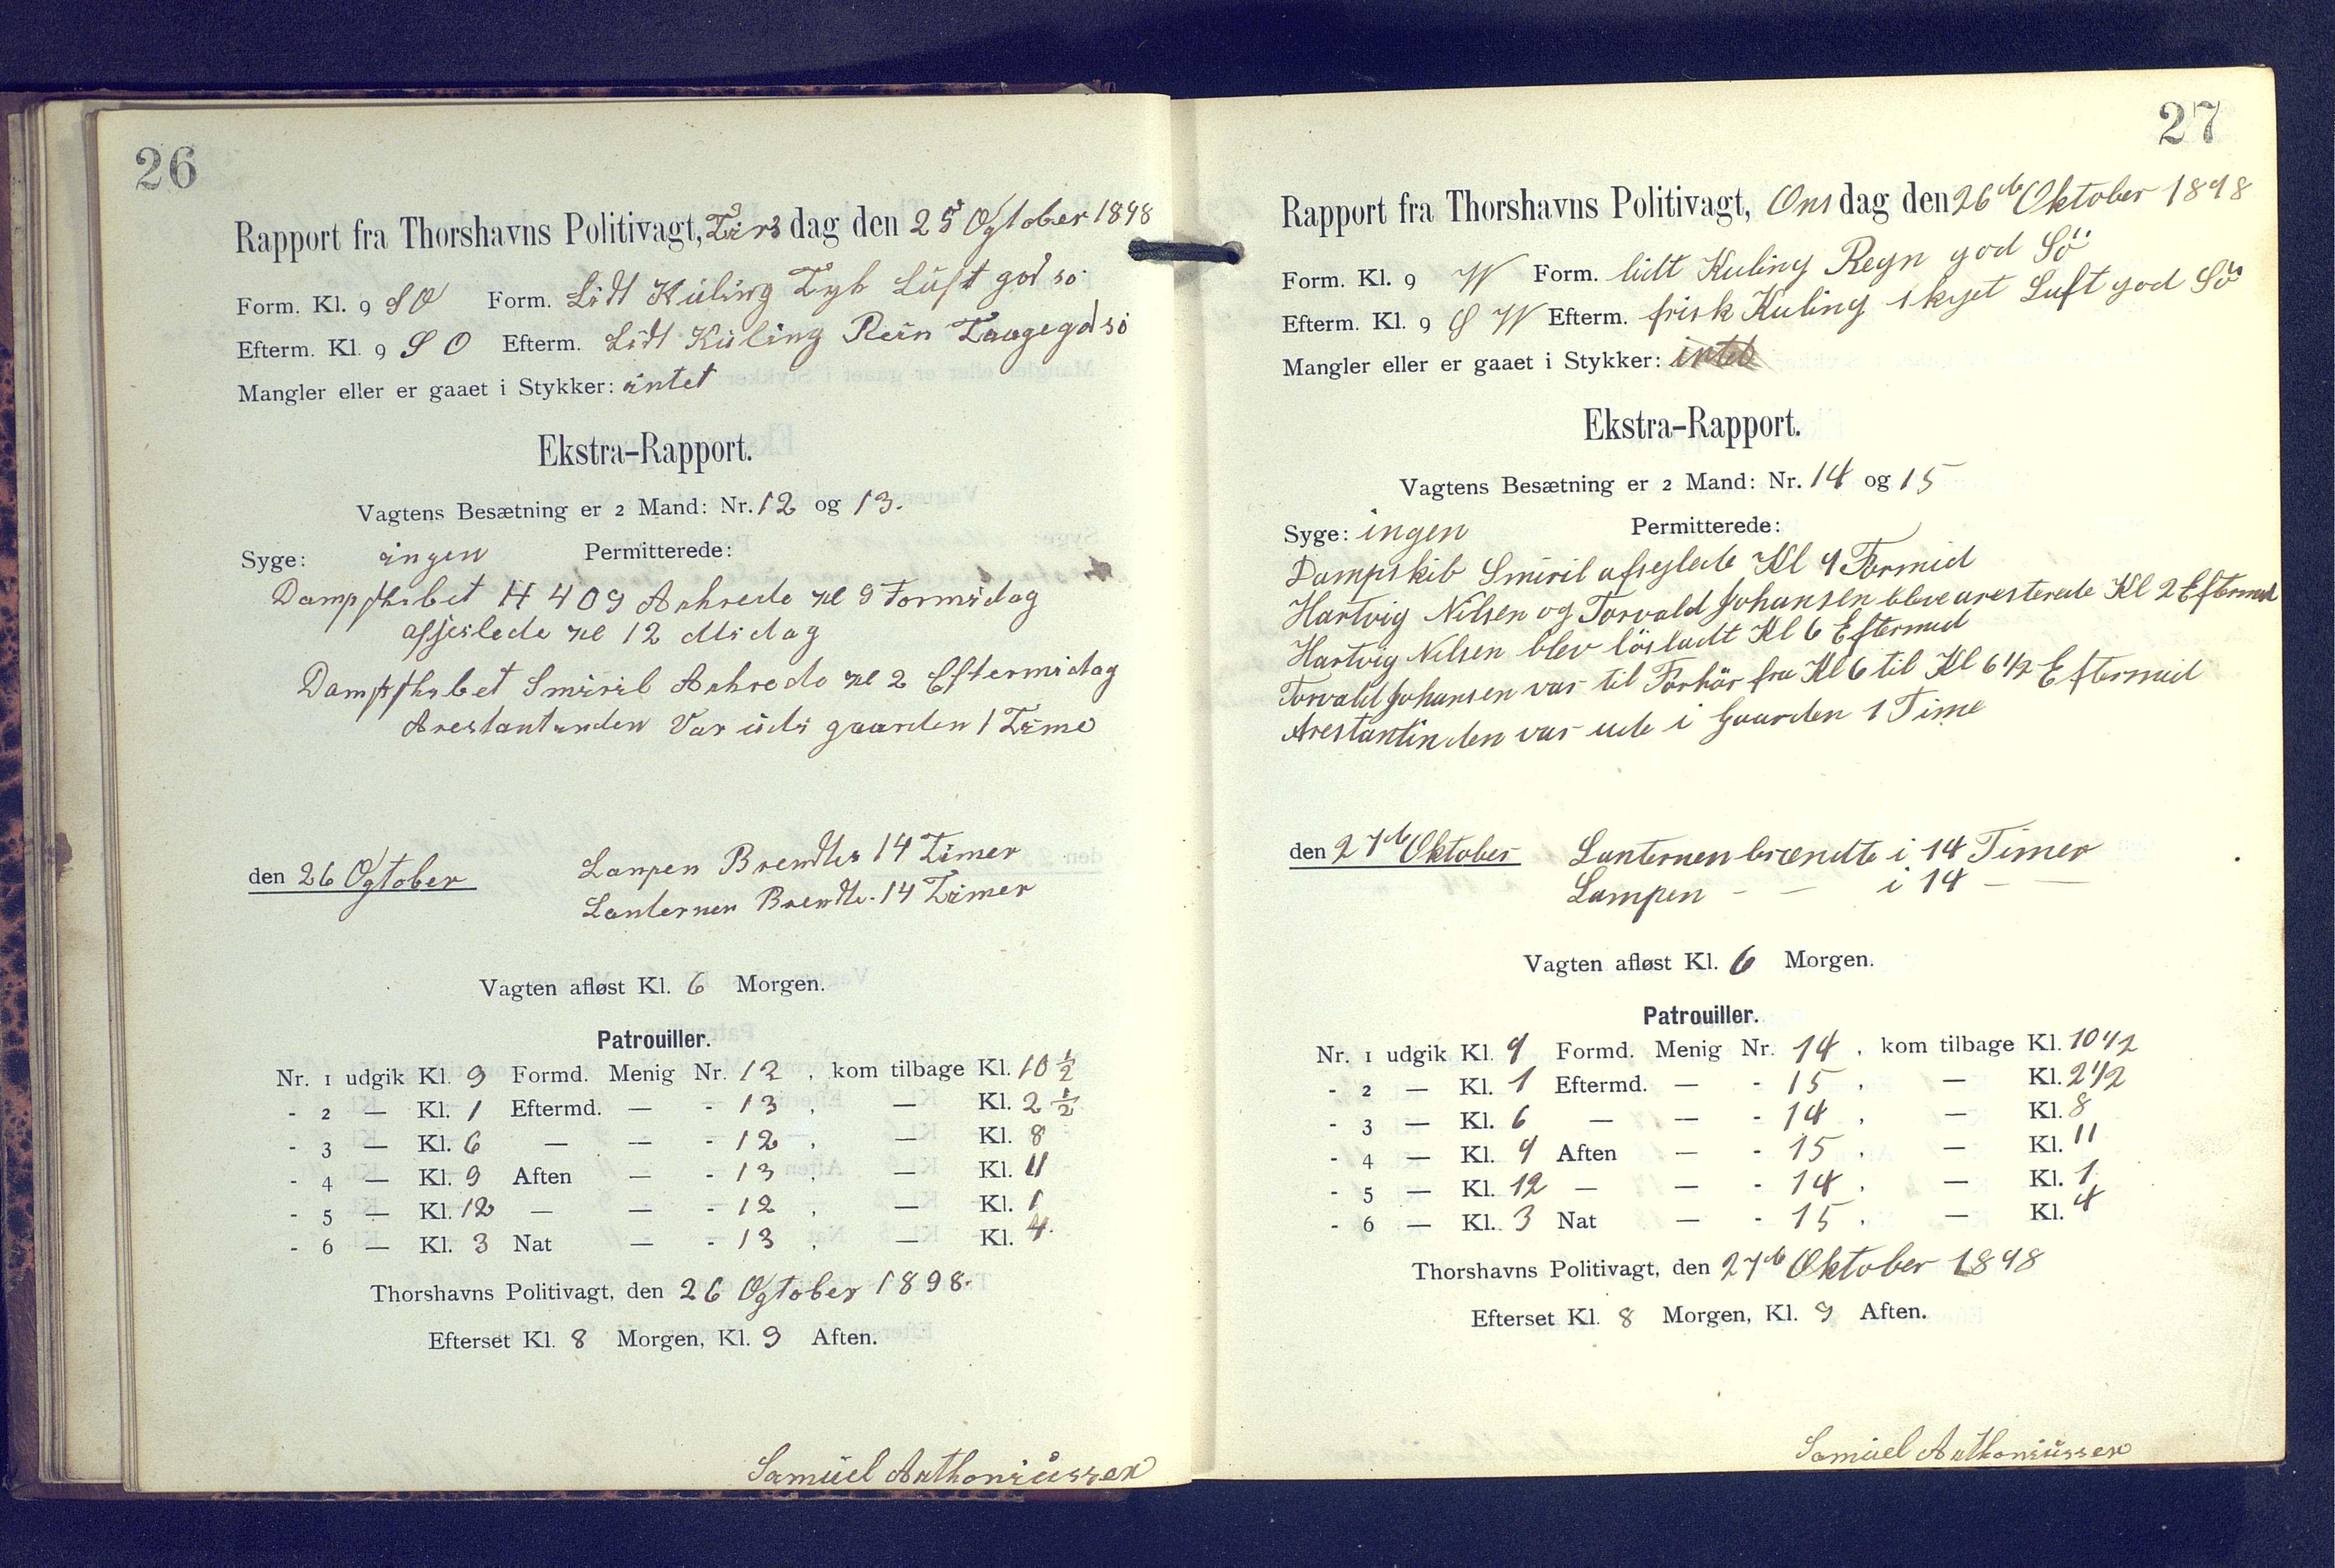 26
Rapport fra Thorshavns Politivagt, Tirsdag den 25 Ogtober 1898
Form. Kl. 9 SO Form. Lidt Kuling Tyk Luft god sö
Efterm. Kl. 9 SO Efterm. Lidt Kuling Rein Taage god sö
Mangler eller er gaaet i Stykker: intet
Ekstra-Rapport.
Vagtens Besætning er 2 Mand: Nr. 12 og 13.
Syge: ingen Permitterede:
Dampskibet H 409 Ankrede Kl 9 Formidag
afseilede Kl 12 Midag
Dampskibet Smiril Ankrede Kl 2 Eftermidag
Arestantinden Var udi gaarden 1 Time
den 26 Ogtober Lampen Brendte 14 Timer
Lanternen Brendte 14 Timer
Vagten afløst Kl. 6 Morgen.
Patrouiller.
Nr. 1 udgik Kl. 9 Formd. Menig Nr. 12 , kom tilbage Kl. 10 1/2
- 2 — Kl. 1 Eftermd. — - 13 , — Kl. 2 1/2
- 3 — Kl. 6 — — - 12 , — Kl. 8
- 4 — Kl. 9 Aften — - 13 , — Kl. 11
- 5 — Kl. 12 — — - 12 , — Kl. 1
- 6 — Kl. 3 Nat — - 13 , — Kl. 4.
Thorshavns Politivagt, den 26 Ogtober 1898.
Efterset Kl. 8 Morgen, Kl. 9 Aften.
Samuel Anthoniussen
27
Rapport fra Thorshavns Politivagt, Onsdag den 26de Oktober 1898
Form. Kl. 9 W Form. lidt Kuling Regn god Sö
Efterm. Kl. 9 S W Efterm. frisk Kuling skyet Luft god Sö
Mangler eller er gaaet i Stykker: intet
Ekstra-Rapport.
Vagtens Besætning er 2 Mand: Nr. 14 og 15
Syge: ingen Permitterede:
Dampskib Smiril afseglede Kl 9 Formid
Hartvig Nilsen og Torvald Johansen bleve aresterede Kl 2 Eftermid
Hartvig Nilsen blev lösladt Kl 6 Eftermid
Torvald Johansen var til Forhör fra Kl 6 til Kl 6 1/2 Eftermid
Arestantinden var ude i Gaarden 1 Time
den 27de Oktober Lanternen brændte i 14 Timer
Lampen - - i 14 — —
Vagten afløst Kl. 6 Morgen.
Patrouiller.
Nr. 1 udgik Kl. 9 Formd. Menig Nr. 14 , kom tilbage Kl. 10 1/2
- 2 — Kl. 1 Eftermd. — - 15 , — Kl. 2 1/2
- 3 — Kl. 6 — — - 14 , — Kl. 8
- 4 — Kl. 9 Aften — - 15 , — Kl. 11
- 5 — Kl. 12 — — - 14 , — Kl. 1
- 6 — Kl. 3 Nat — - 15 , — Kl. 4
Thorshavns Politivagt, den 27de Oktober 1898
Efterset Kl. 8 Morgen, Kl. 9 Aften.
Samuel Anthoniussen